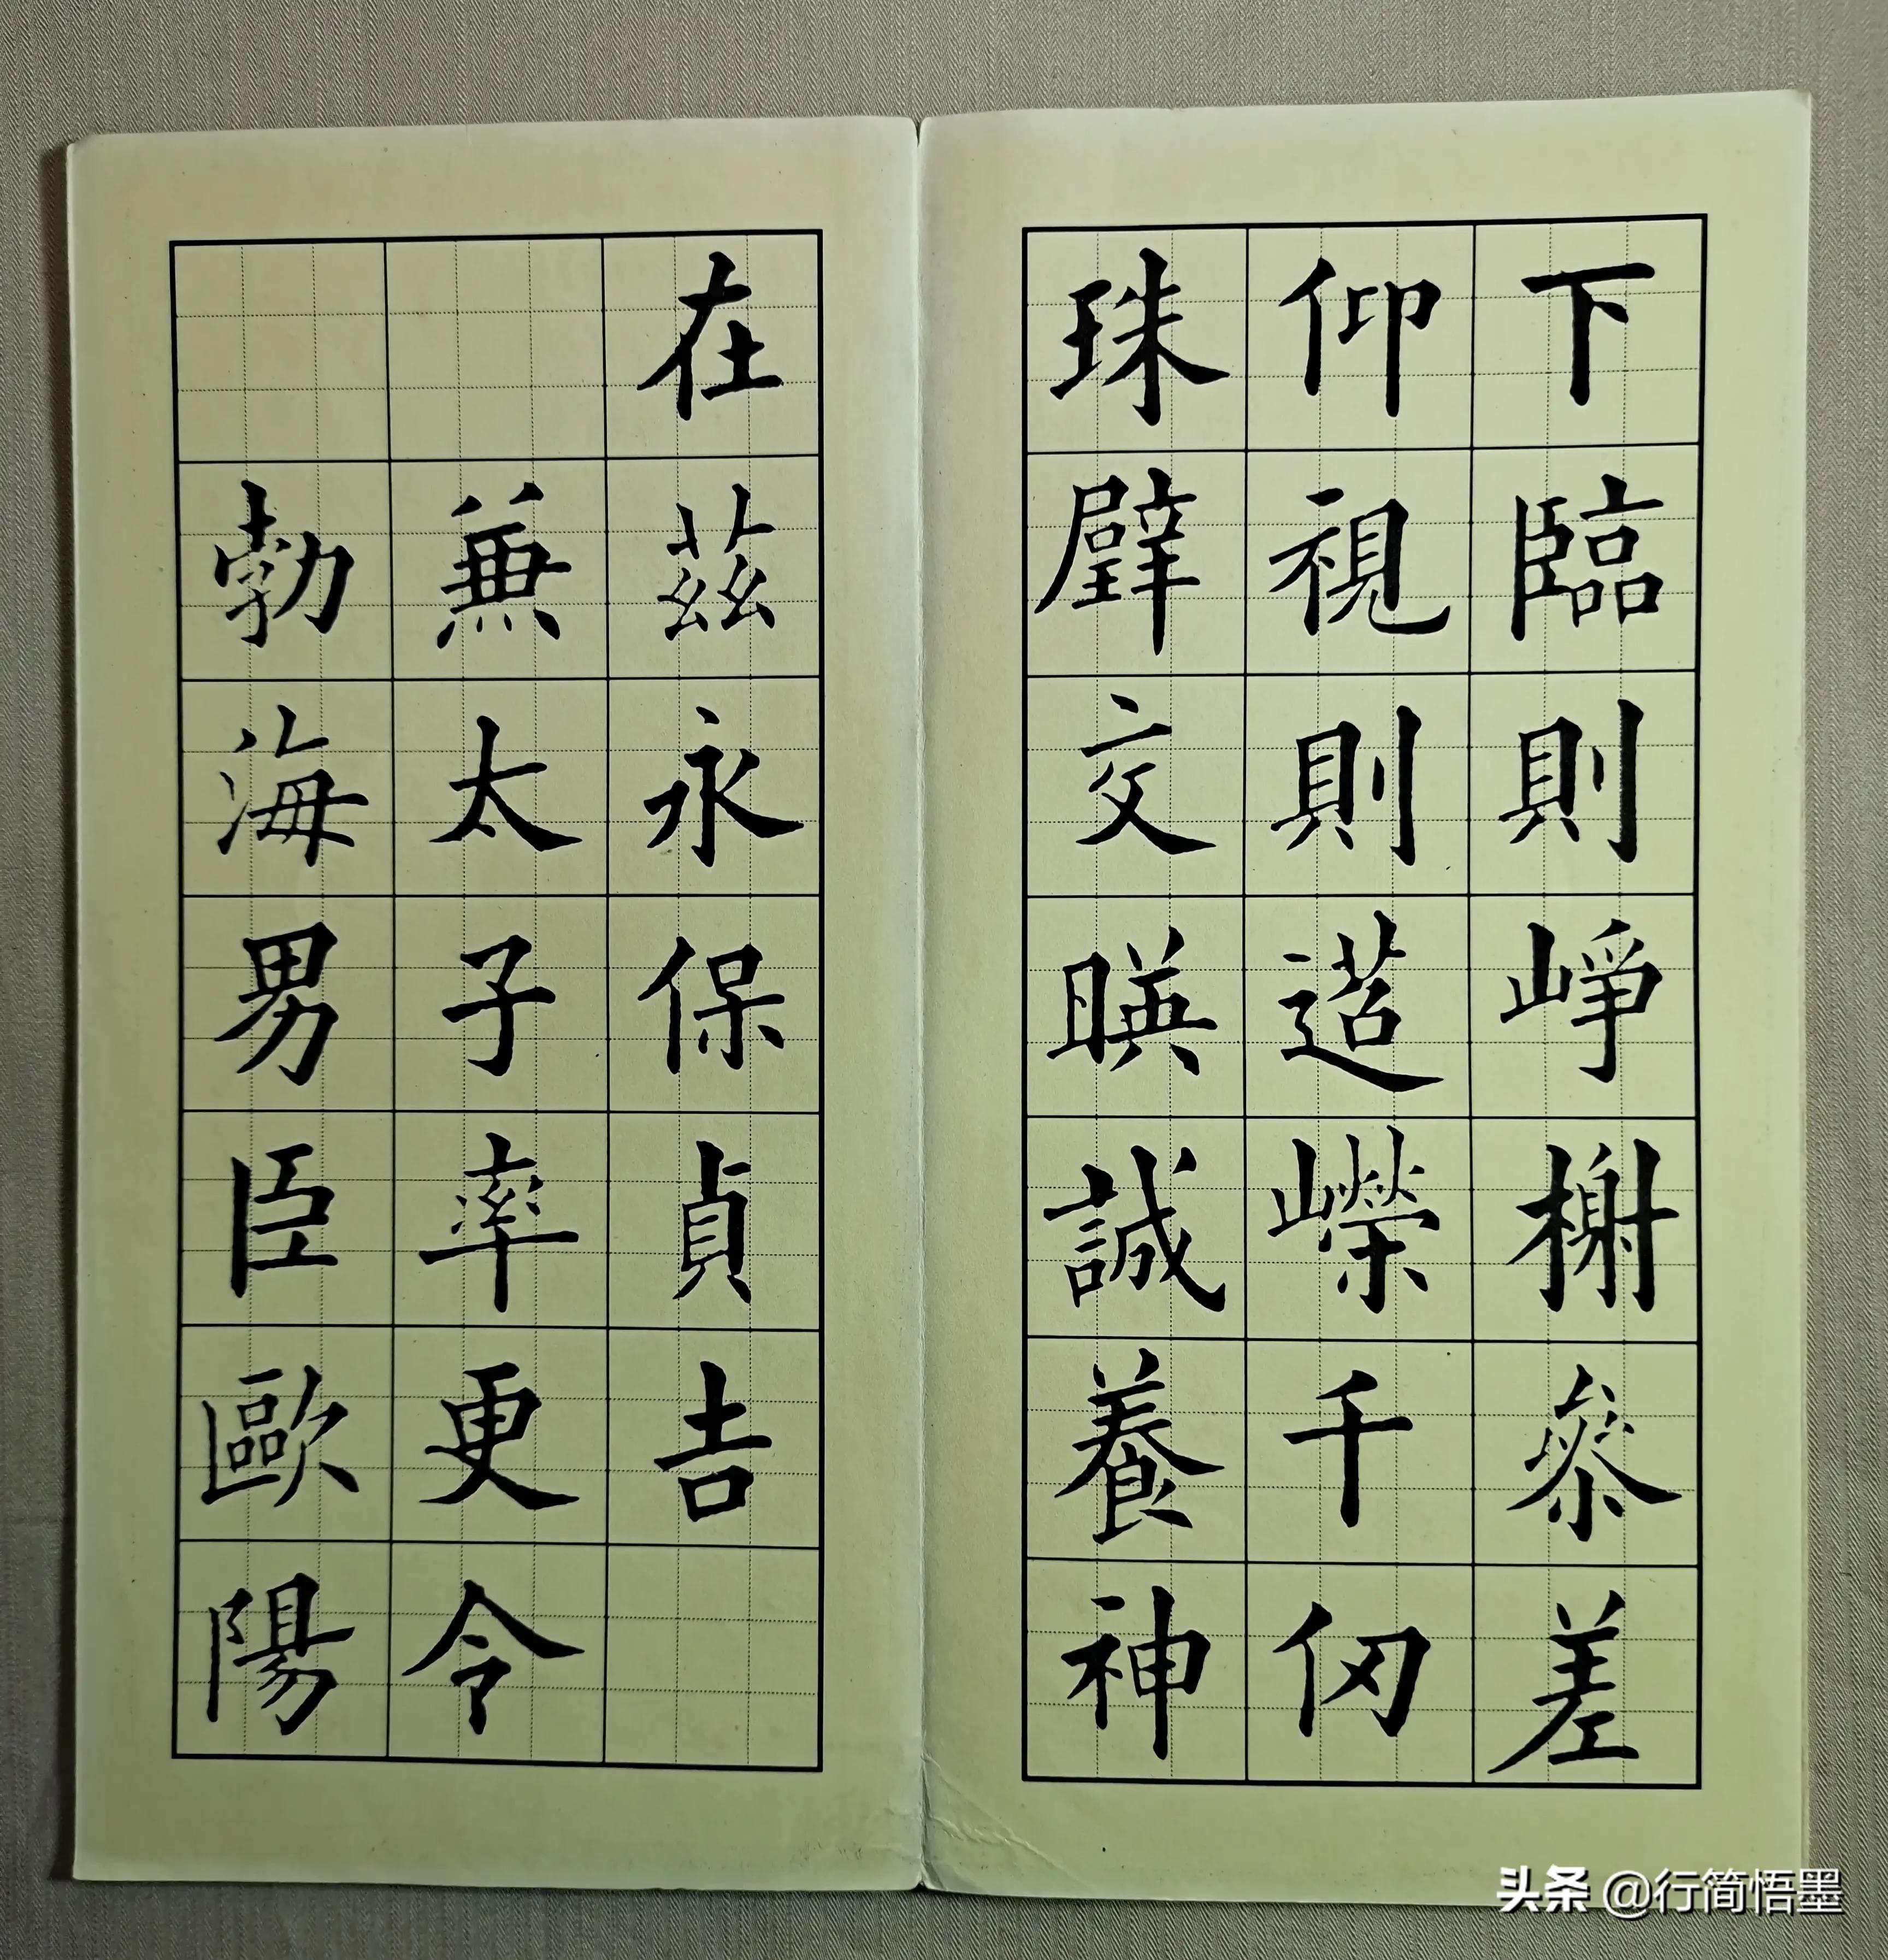 下臨則峥榭參差
仰視則迢嶸千仞
珠璧交暎誠養神
在茲永保貞吉
兼太子率更令
勃海男臣歐陽
头条 @行简悟墨